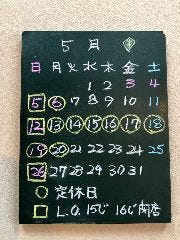 5月
日 月 火 水 木 金 土
1 2 3 4
5 6 7 8 9 10 11
12 13 14 15 16 17 18
19 20 21 22 23 24 25
26 27 28 29 30 31
定休日
L.O.15じ 16じ閉店